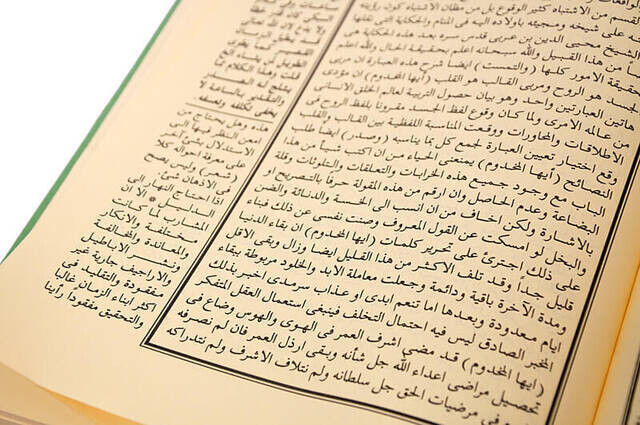 القسم من الاشتباه كثير الوقوع بل من مظان الاشتباه كون رؤية
على شيخه ومجيئه باولاده اليه فى المنام والحكاية التى نقلها
الشيخ محيى الدين بن عربى قدس سره بعد هذه الحكاية هى
من هذا القبيل والله سبحانه اعلم بحقيقة الحال والله اعلم
بحقيقة الامور كلها ( والتمست ) ايضا شرح هذه العبارة ان مربى
الجسد هو الروح ومربى القالب هو القلب ( أيها المخدوم ) ان مؤدى
هاتين العبارتين واحد وهو بيان حصول التربية لعالم الخلق الانسانى
من عالمه الامرى ولما كان وقوع لفظ الجسد مقرونا بلفظ الروح فى
الاطلاقات والمحاورات ووقعت المناسبة اللفظية بين القالب والقلب
وقع اختيار تعيين العبارة لجمع كل بما يناسبه ( وصدر ) ايضا طلب
النصائح ( أيها المخدوم ) يمنعنى الحياء من ان اكتب شيأ من هذا
الباب مع وجود جميع هذه الخرابات والتعلقات والتلوثات وقلة
البضاعة وعدم الحاصل وان ارقم من هذه المقولة حرفا بالتصريح او
بالاشارة ولكن اخاف من ان انسب الى الخسة والدناءة والضن
والبخل لو امسكت عن القول المعروف وصنت نفسى عن ذلك فبناء
على ذلك اجترئ على تحرير كلمات ( ايها المخدوم ) ان بقاء الدنيا
قليل جدا وقد تلف الاكثر من هذا القليل ايضا وزال وبقى الاقل
ومدة الآخرة باقية ودائمة وجعلت معاملة الابد والخلود مربوطة ببقاء
ايام معدودة وبعدها اما تنعم ابدى او عذاب سرمدى اخبر بذلك
المخبر الصادق ليس فيه احتمال التخلف فينبغى استعمال العقل المتفكر
( ايها المخدوم ) قد مضى اشرف العمر فى الهوى والهوس وضاع فى
تحصيل مراضى اعداء الله جل شأنه وبقى ارذل العمر فان لم نصرفه
فى مرضيات الحق جل سلطانه ولم نتلاف الاشرف ولم نتدراكه
قلت وهذا الكلام مما
والتقدير بالساعة لا
يخفى تكلفه وتعسفه
هذه وهل يحتاج من
امعن النظر فيها الى
الاستدلال بشئ آخر
على معرفة احواله كلا
( شعر ) وليس يصح
فى الاذهان شئ
اذا احتاج النهار الى
الدليل * الا ان
المشارب لما كانت
مختلفة والانكار
والمعاندة والمخالفة
ونشر الاباطيل
والاراجيف جارية غير
مفقودة والتقليد فى
اكثر ابناء الزمان غالبا
والتحقيق مفقودا رأينا